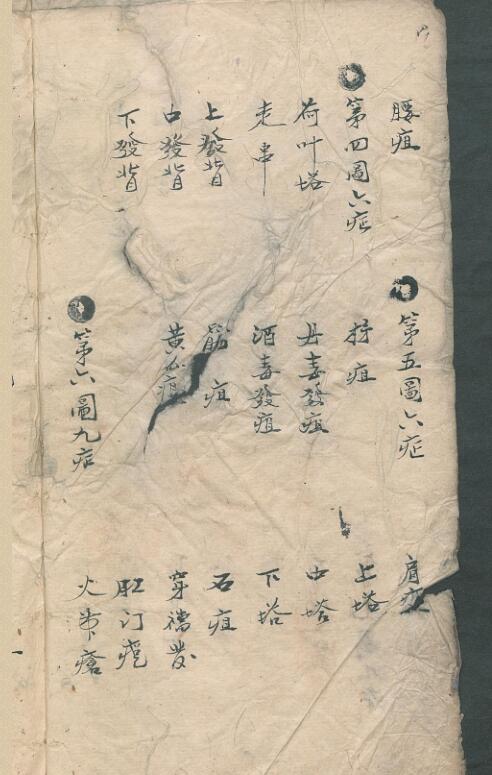 腰疽
第四圖六症
荷叶塔
走串
上發背
中發背
下發背
第五圖六症
疽
丹毒發疽
酒毒發疽
筋疽
黃疽
第六圖九症
肩
上塔
中塔
下塔
石疽
穿襠發
肛汀疤
火帶瘡